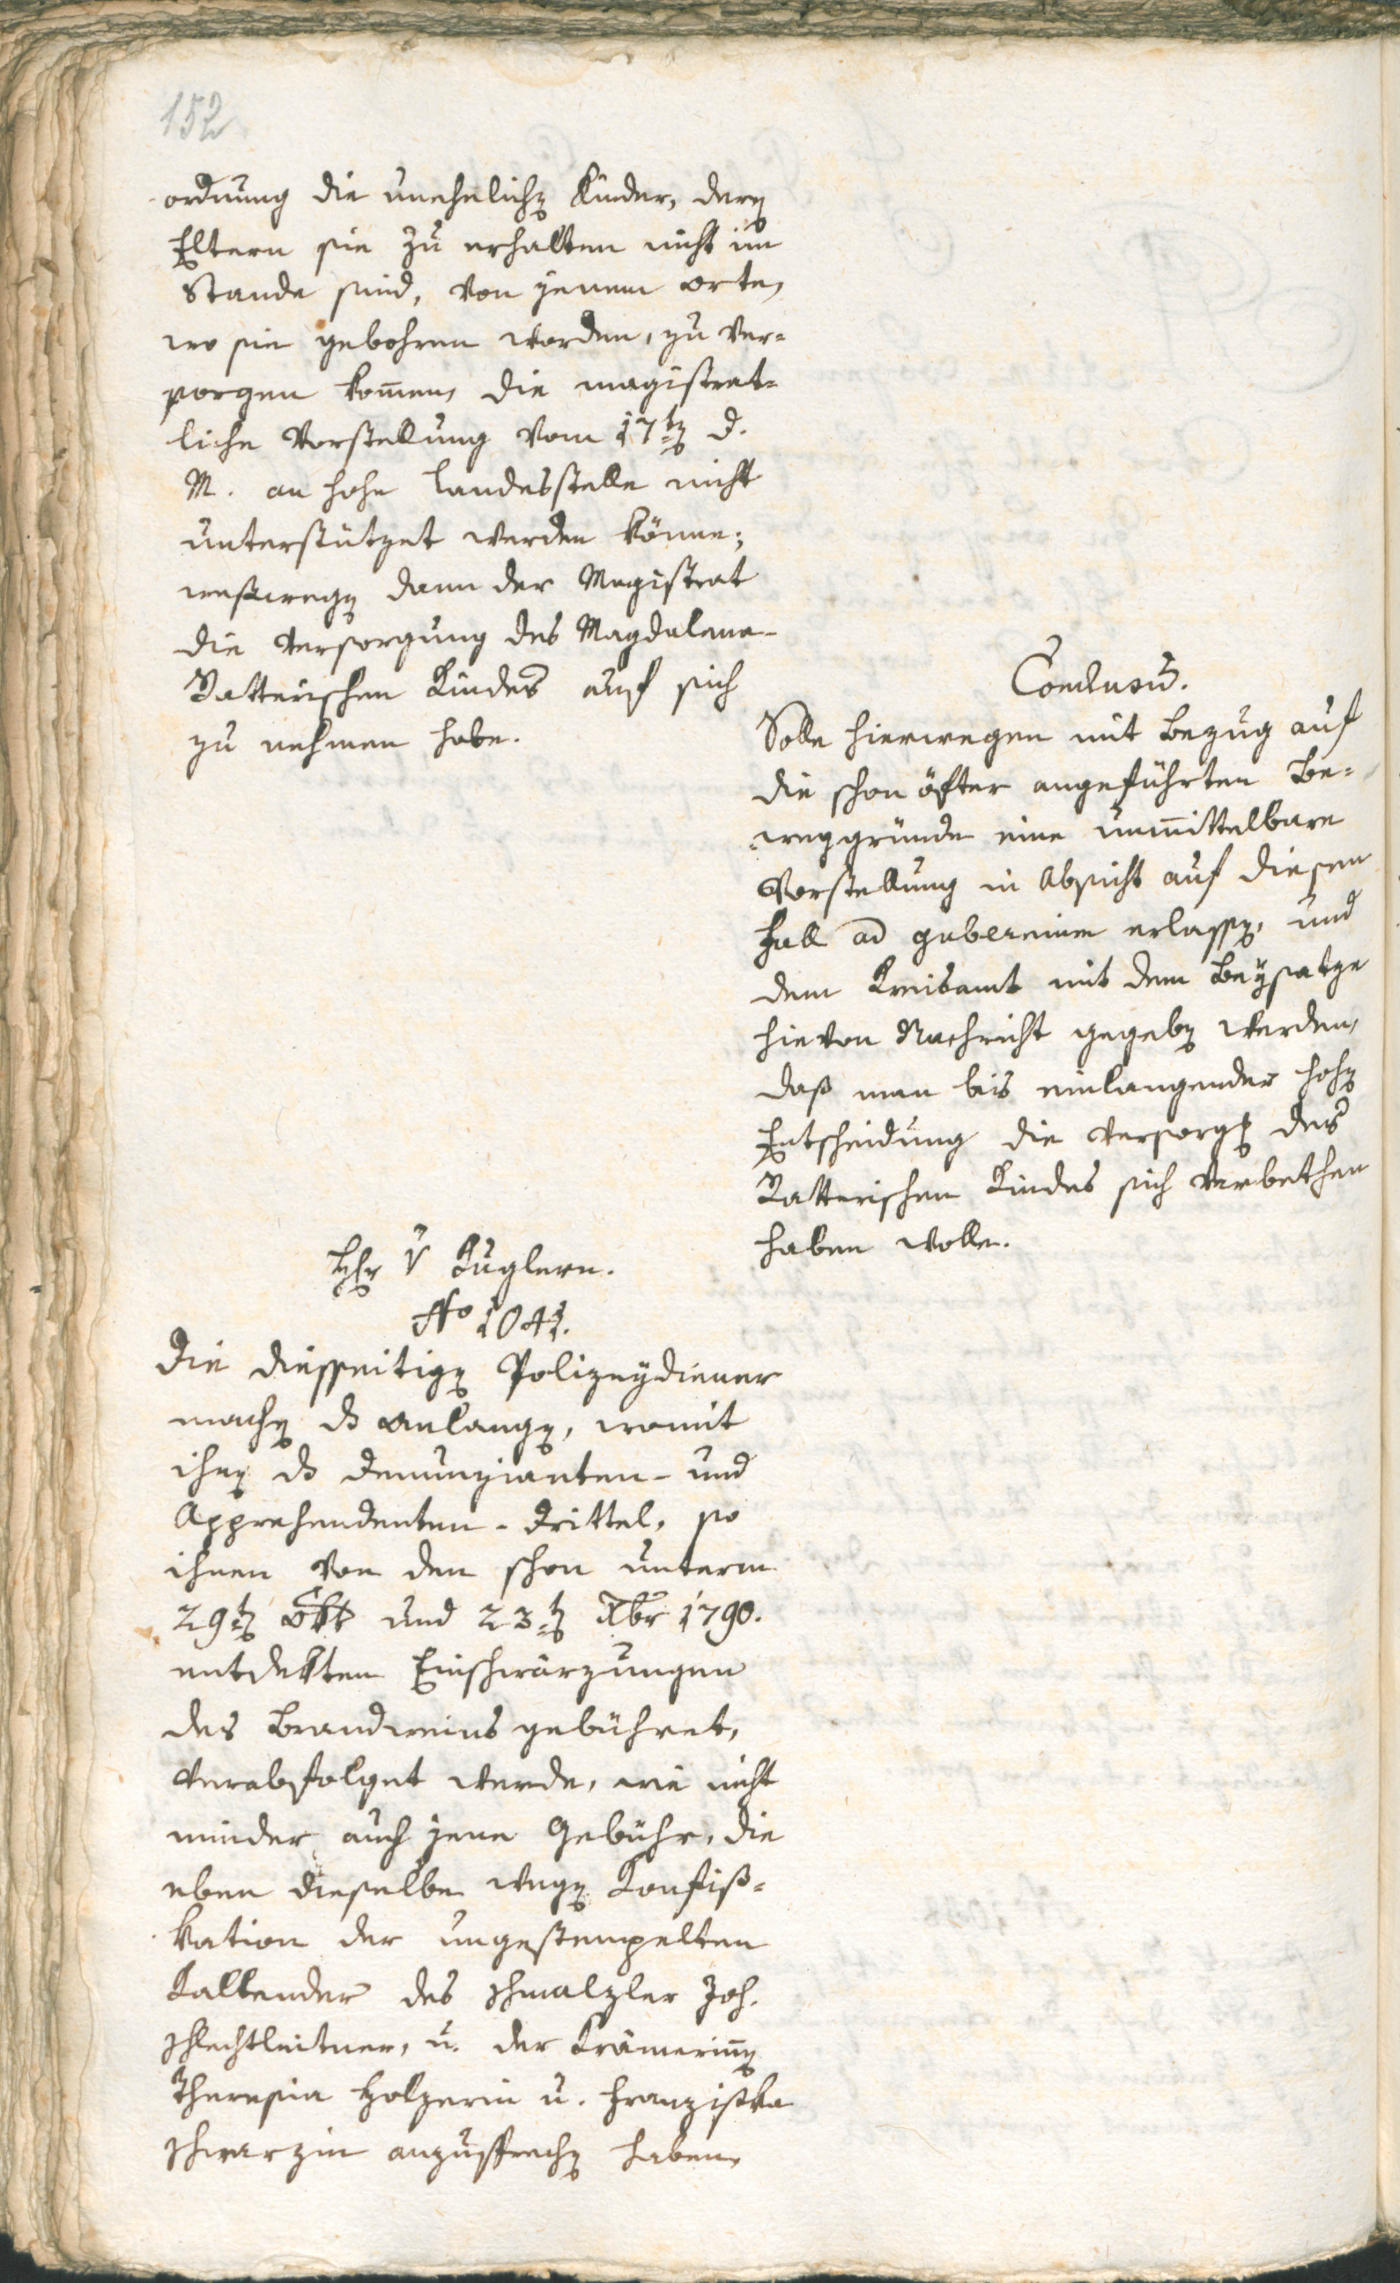 152
ordnung die unehelichen Kinder, deren
Eltern sie zu erhalten nicht im
Stande sind, von jenem orte,
wo sie gebohren worden, zu ver=
sorgen komen, die magistrat=
liche Vorstellung vom 17ten d.
M. an hohe Landesstelle nicht
unterstützet werden könne;
weßwegen dann der Magistrat
die Versorgung des Magdalena-
Batterischen Kindes auf sich
zu nehmen habe.
Conclusum.
Solle hierwegen mit Bezug auf
die schon öfter angeführten Be=
weggründe eine unmittelbare
Vorstellung in Absicht auf diesen
Fall ad gubernium erlassen, und
dem Kreisamt mit dem Beysatze
hievon Nachricht gegeben werden,
daß man bis einlangender hohen
Entscheidung die Versorgung des
Batterischen Kindes sich verbethen
haben wolle.
Hhr v Kuglern.
No 1041.
Die diesseitigen Polizeydiener
machen das Anlangen, womit
ihnen das Denunzianten- und
Apprehendenten-Drittel, so
ihnen von den schon unterm
29ten Okt und 23ten Xbr 1790.
entdekten Einschwärzungen
des Brandweins gebühret,
verabfolget werde, wie nicht
minder auch jene Gebühr, die
eben dieselbe wegen Konfiß=
kation der ungestempelten
Kallender des Schmalzler Joh.
Schlechtleitner, u. der Krämerinnen
Theresia Holzerin u. Franziska
Schwarzin anzusprechen haben,